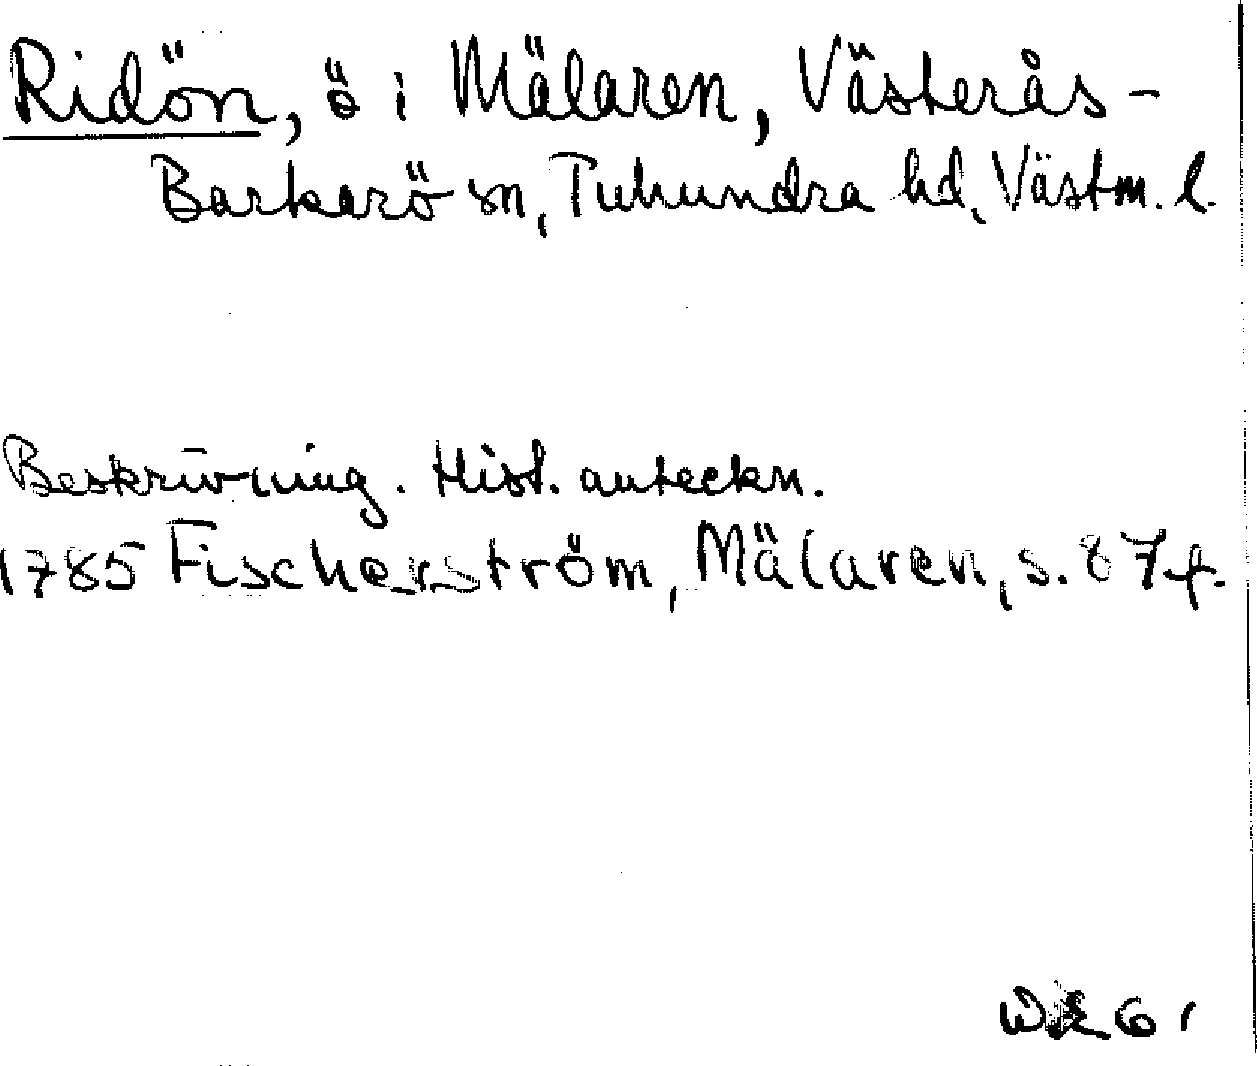 Ridön, ö i Mälaren, Västerås-
Barkarö sn, Tuhundra hd, Västm. l.
Beskrivning. Hist. anteckn.
1785 Fischerström, Mälaren, s. 87 f.
61